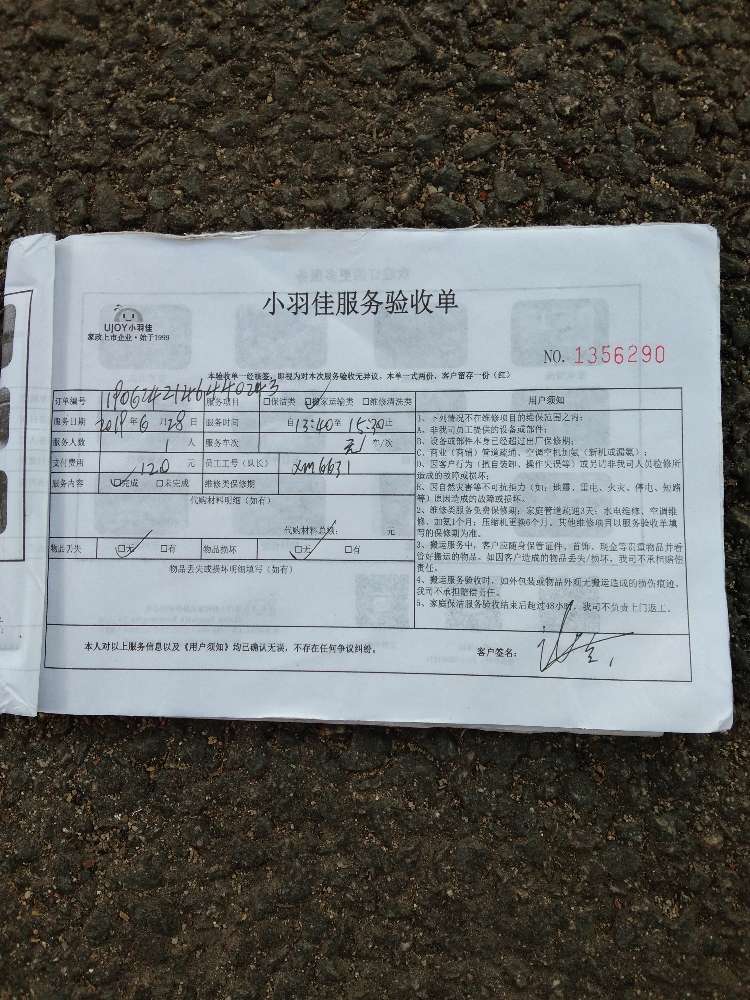 UJOY小羽佳
家政上市企业·始于1999
小羽佳服务验收单
NO. 1356290
本验收单一经核签,即视为对本次服务验收无异议,本单一式两份,客户留存一份(红)
订单编号 服务项目 □保洁类 □搬家运输类 □维修清洗类
服务日期 2019年6月28日 服务时间 自13:40至15:30止
服务人数 1 人 服务车次 车/次
支付费用 120 元 员工工号(队长) XM6631
服务内容 □完成 □未完成 维修类保修期
代购材料明细(如有)
代购材料总额: 元
物品丢失 □无 □有 物品损坏 □无 □有
物品丢失或损坏明细填写(如有)
用户须知
1、下列情况不在维修项目的维保范围之内:
A、非我司员工提供的设备或部件;
B、设备或部件本身已经超过出厂保修期;
C、商业(商铺)管道疏通、空调空机加氟(新机或漏氟);
D、因客户行为(擅自装卸、操作失误等)或另请非我司人员检修所
造成的故障或损坏;
E、因自然灾害等不可抗拒力(如:地震、雷电、火灾、停电、短路
等)原因造成的故障或损坏。
2、维修类服务免费保修期:家庭管道疏通3天;水电维修、空调维
修、加氟1个月;压缩机更换6个月。其他维修项目以服务验收单填
写的保修期为准。
3、搬运服务中,客户应随身保管证件、首饰、现金等贵重物品并看
管好搬运的物品。如因客户造成的物品丢失/损坏,我司不承担赔偿
责任。
4、搬运服务验收时,如外包装或物品外观无搬运造成的损伤痕迹,
我司不承担赔偿责任。
5、家庭保洁服务验收结束后超过48小时,我司不负责上门返工。
本人对以上服务信息以及《用户须知》均已确认无误,不存在任何争议纠纷。 客户签名: